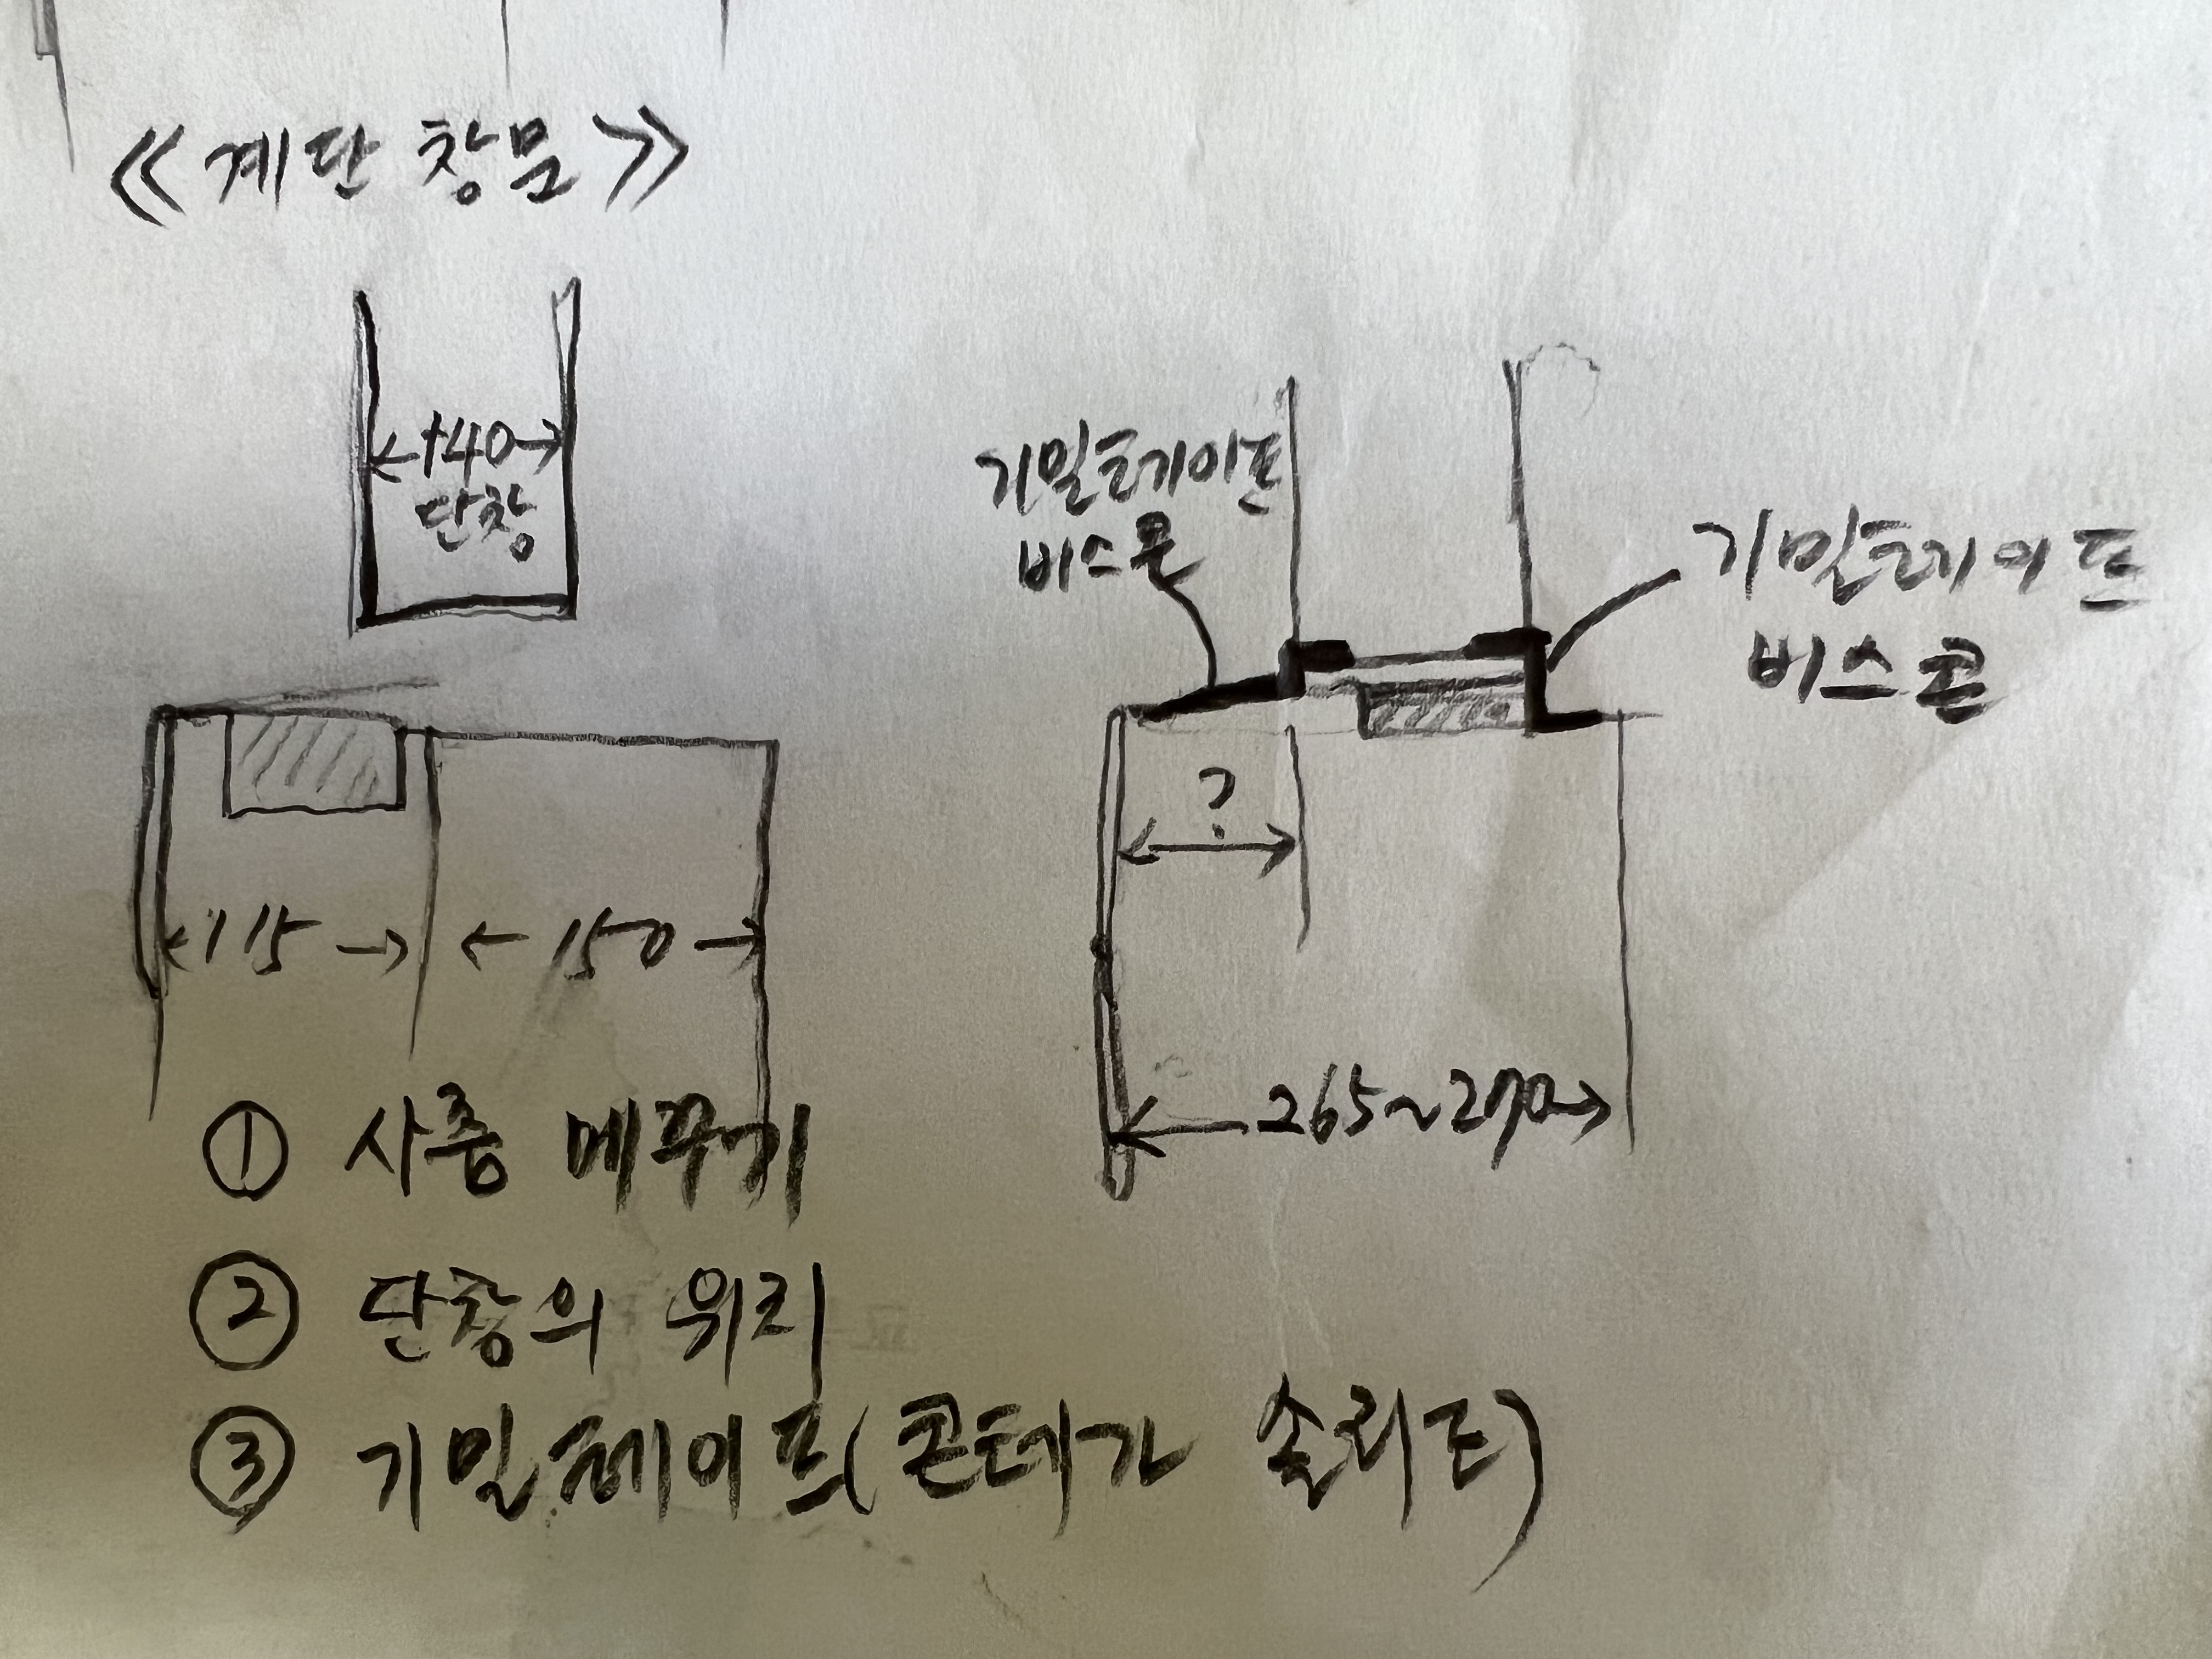 《계단 창문》
140
단창
기밀테이프
비스콘
기밀테이프
비스콘
?
115
150
265~290
① 사춤 메꾸기
② 단창의 위치
③ 기밀테이프(콘테가 솔리도)